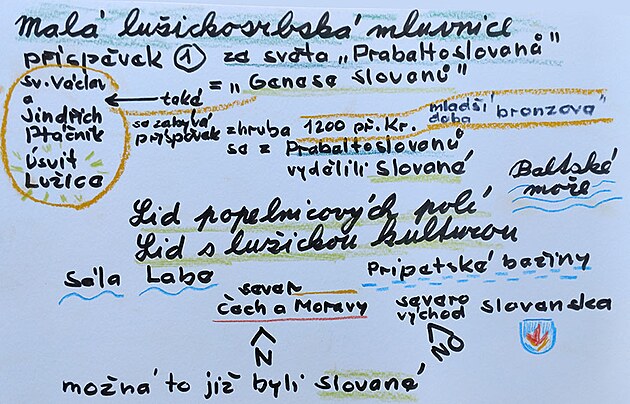 Malá lužickosrbská mluvnice
príspěvek 1 ze světa „Prabaltoslovanů"
= „Geneze slovanů"
sv. Václav
a
Jindřich
Ptáčník
Úsvit
Lužice
také
se zabývá
příspěvek
zhruba 1200 př. Kr.
mladší
doba
"bronzová"
se z Prabaltoslovanů
vydělili slované
Baltské
moře
Lid popelnicových polí
Lid s lužickou kulturou
Sála Labe
Pripetské bažiny
sever
Čech a Moravy
severo
východ
slovenska
N
NO
možná to již byli slované